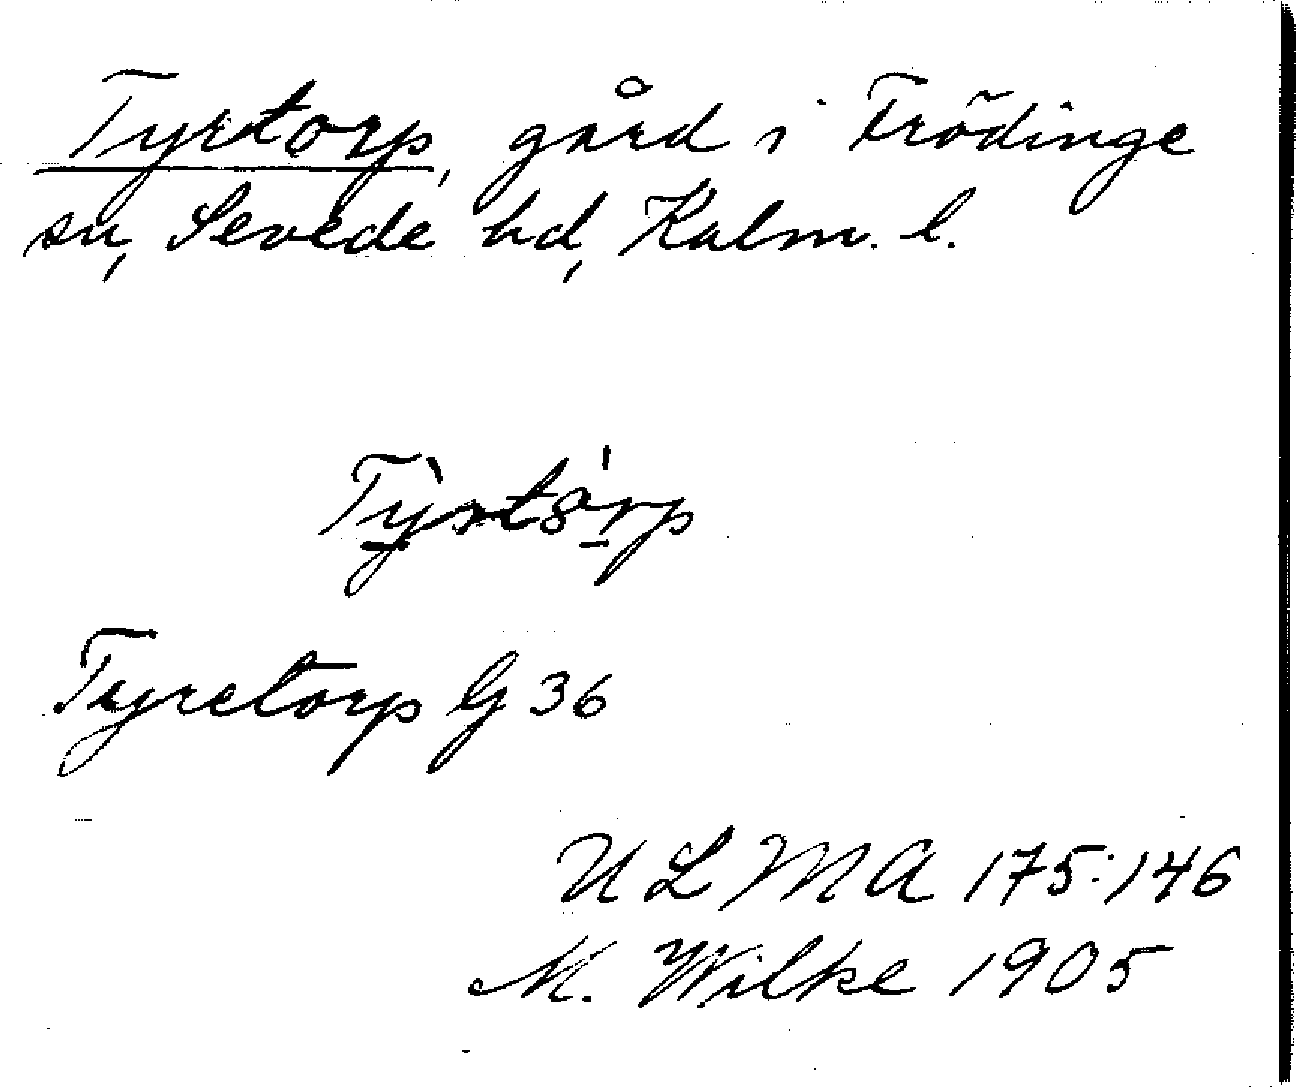 Tyrtorp, gård i Frödinge
sn, Sevede hd, Kalm. l.
Tỳ̠rtór̠p
Tyretorp G 36
ULMA 175:146
M. Wilke 1905